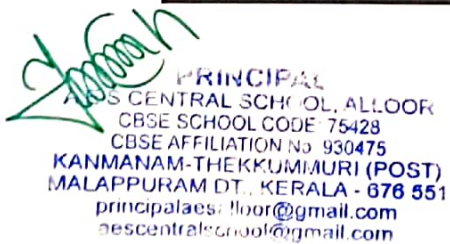 PRINCIPAL
CENTRAL SCHOOL, ALLOOR
CBSE SCHOOL CODE 75428
CBSE AFFILIATION No 930475
KANMANAM-THEKKUMMURI (POST)
MALAPPURAM DT., KERALA - 676 551
aescentralschool@gmail.com